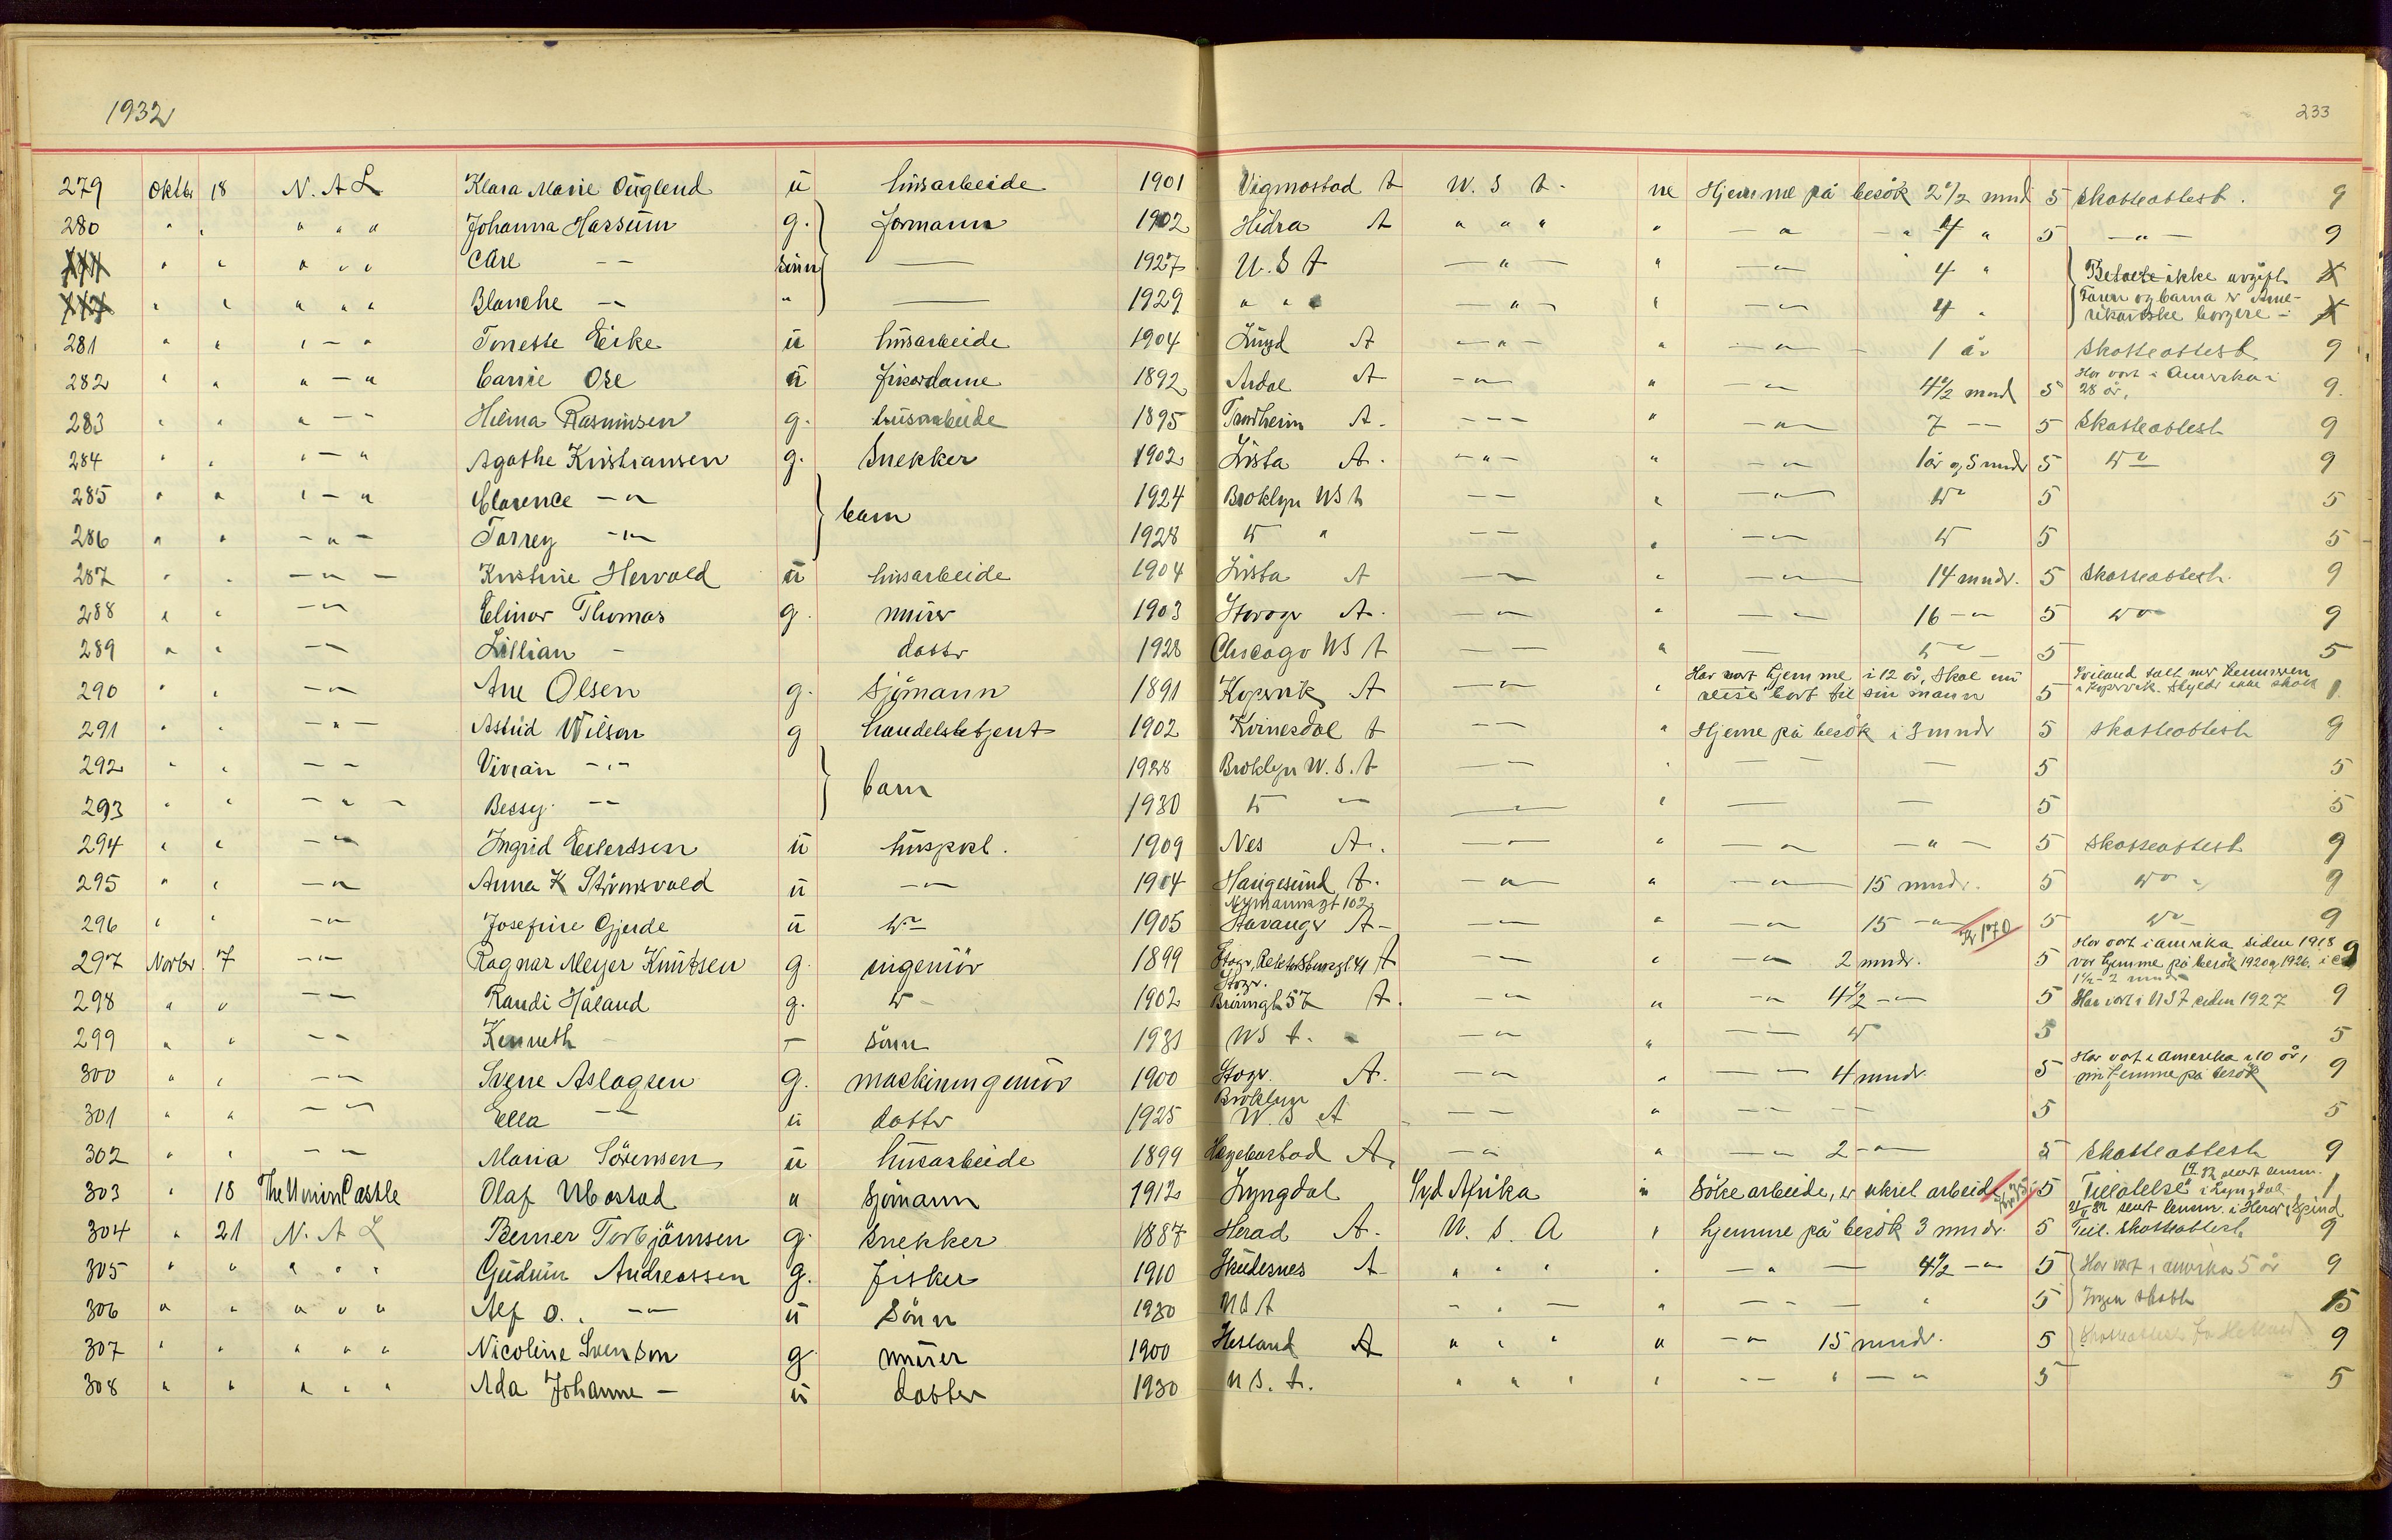 1932
233
279 Oktbr 18 N. A L Klara Marie Öuglend ü husarbeide 1901 Vigmostad A U. S A. ne Hjemme på besök 2 1/2 mnd 5 Skatteattest. 9
280 " " " " " Johanna Hassum g. formann 1902 Hidra A " " " " — " — " 4 " 5 — " — 9
" " " " " Carl — — sönn — 1927 U. S A — " — " — " — 4 " Betaler ikke avgift
" " " " " Blanche — " " — 1929 " " " — " — " — " — 4 " Faren og barna er Ame-
rikanske borgere -
281 " " " — " Tonette Eike ü husarbeide 1904 Lund A — " — " — " — 1 år Skatteattest 9
282 " " " — " Carrie Ose ü frisørdame 1892 Årdal A — " — " — " — 4 1/2 mnd 5 Har vært i Amerika i
28 år, 9.
283 " " " — — Helma Rasmussen g. husarbeide 1895 Trondheim A. — — — " — " — 7 — — 5 Skatteattest 9
284 " " " — " Agathe Kristiansen g. Snekker 1902 Lista A. — " — " — " — 1 år og 5 mndr 5 do 9
285 " " " — " Clarence — " barn 1924 Broklyn US A — — " — " — do 5 5
286 " " — " — Torrey — " — 1928 do " — — " — " — do 5 5
287 " " — " — Kristine Hervold ü husarbeide 1904 Lista A — " — " — " — 14 mndr. 5 Skatteattest. 9
288 " " — " Elinor Thomas g. murer 1903 Stavgr A. — " — " — " — 16 — " 5 do 9
289 " " — " Lillian — datter 1928 Chicago US A — — " — do — 5 5
290 " " — " Ane Olsen g. Sjömann 1891 Kopervik A — " — " Har vært hjemme i 12 år, Skal nu
reise bort til sin mann 5 i Kopervik. Skylder ikke skatt 1
291 " " — " — Astrid Wilson g handelsbetjent 1902 Kvinesdal A — — " Hjeme på besök i 3 mndr 5 Skatteattest 9
292 " " — — Vivian — " — barn 1928 Broklyn U. S. A — — " — — — 5 5
293 " " — " — Bessy. — — 1930 do — " — " — — 5 5
294 " " — " Ingrid Eilertssen ü huspul. 1909 Nes A. — " — " — " — — " — 5 Skatteattest 9
295 " " — " Anna K Strömsvold ü — " — 1904 Haugesund A. — " — " — " — 15 mndr. 5 do " 9
296 " " — " Josefine Gjerde ü do 1905 Nymannsgt 102
Stavanger A — — " — " — " 15 — " — 5 do — 9
297 Novbr. 7 — " — Ragnar Meyer Knutsen g. ingeniör 1899 A — " — " — " 2 mndr. 5 Har vært i amerika siden 1918 9
var hjemme på besök 1920 og 1926. i ca
1 1/2 - 2 mndr
298 " " — " — Randi Håland g. do — 1902 Stavgr. 57 A. — " — " — " 4 1/2 — " 5 Har vært i USA siden 1927 9
299 " " — — Kenneth — — sönn 1931 US A. " — " " — — do 5 5
300 " " — " Sverre Aslagsen g. maskiningeniör 1900 Stavgr. A. — " — " — — 4 mndr 5 Har vært i Amerika i 10 år,
nu hjemme på besök 9
301 " " — " Ella — " — ü datter 1925 Broklyn
U. S A — — " — — — 5 5
302 " " — — Maria Sörensen ü husarbeide 1899 Hægebostad A. — " " — " 2 — " — 5 Skatteattest 9
303 " 18 The Union Castle Olaf Ubostad u Sjömann 1912 Lyngdal Syd Afrika Söke arbeide, er sikret arbeide 5 Tillatelse i Lyngdal 1
304 " 21 N. A L Berner Torbjörnsen g. Snekker 1887 Herad A. U. S. A " hjemme på besök 3 mndr. 5 Till. Skatteattest. 9
305 " " " " " Gudrun Andreassen g. fisker 1910 Skudesnes A " " " " — " — 4 1/2 — " 5 Har vært i amerika 5 år 9
306 " " " " " Alf O. . — " — ü Sönn 1930 US A — " — " — — — " 5 Ingen skatt 5
307 " " " " " Nicoline Svenson g. murer 1900 Hetland A " " " " — " 15 mndr. 5 Skatteattest fra Hetland 9
308 " " " " " Ada Johanne — ü datter 1930 U S. A. " " " " — — " — " 5 5